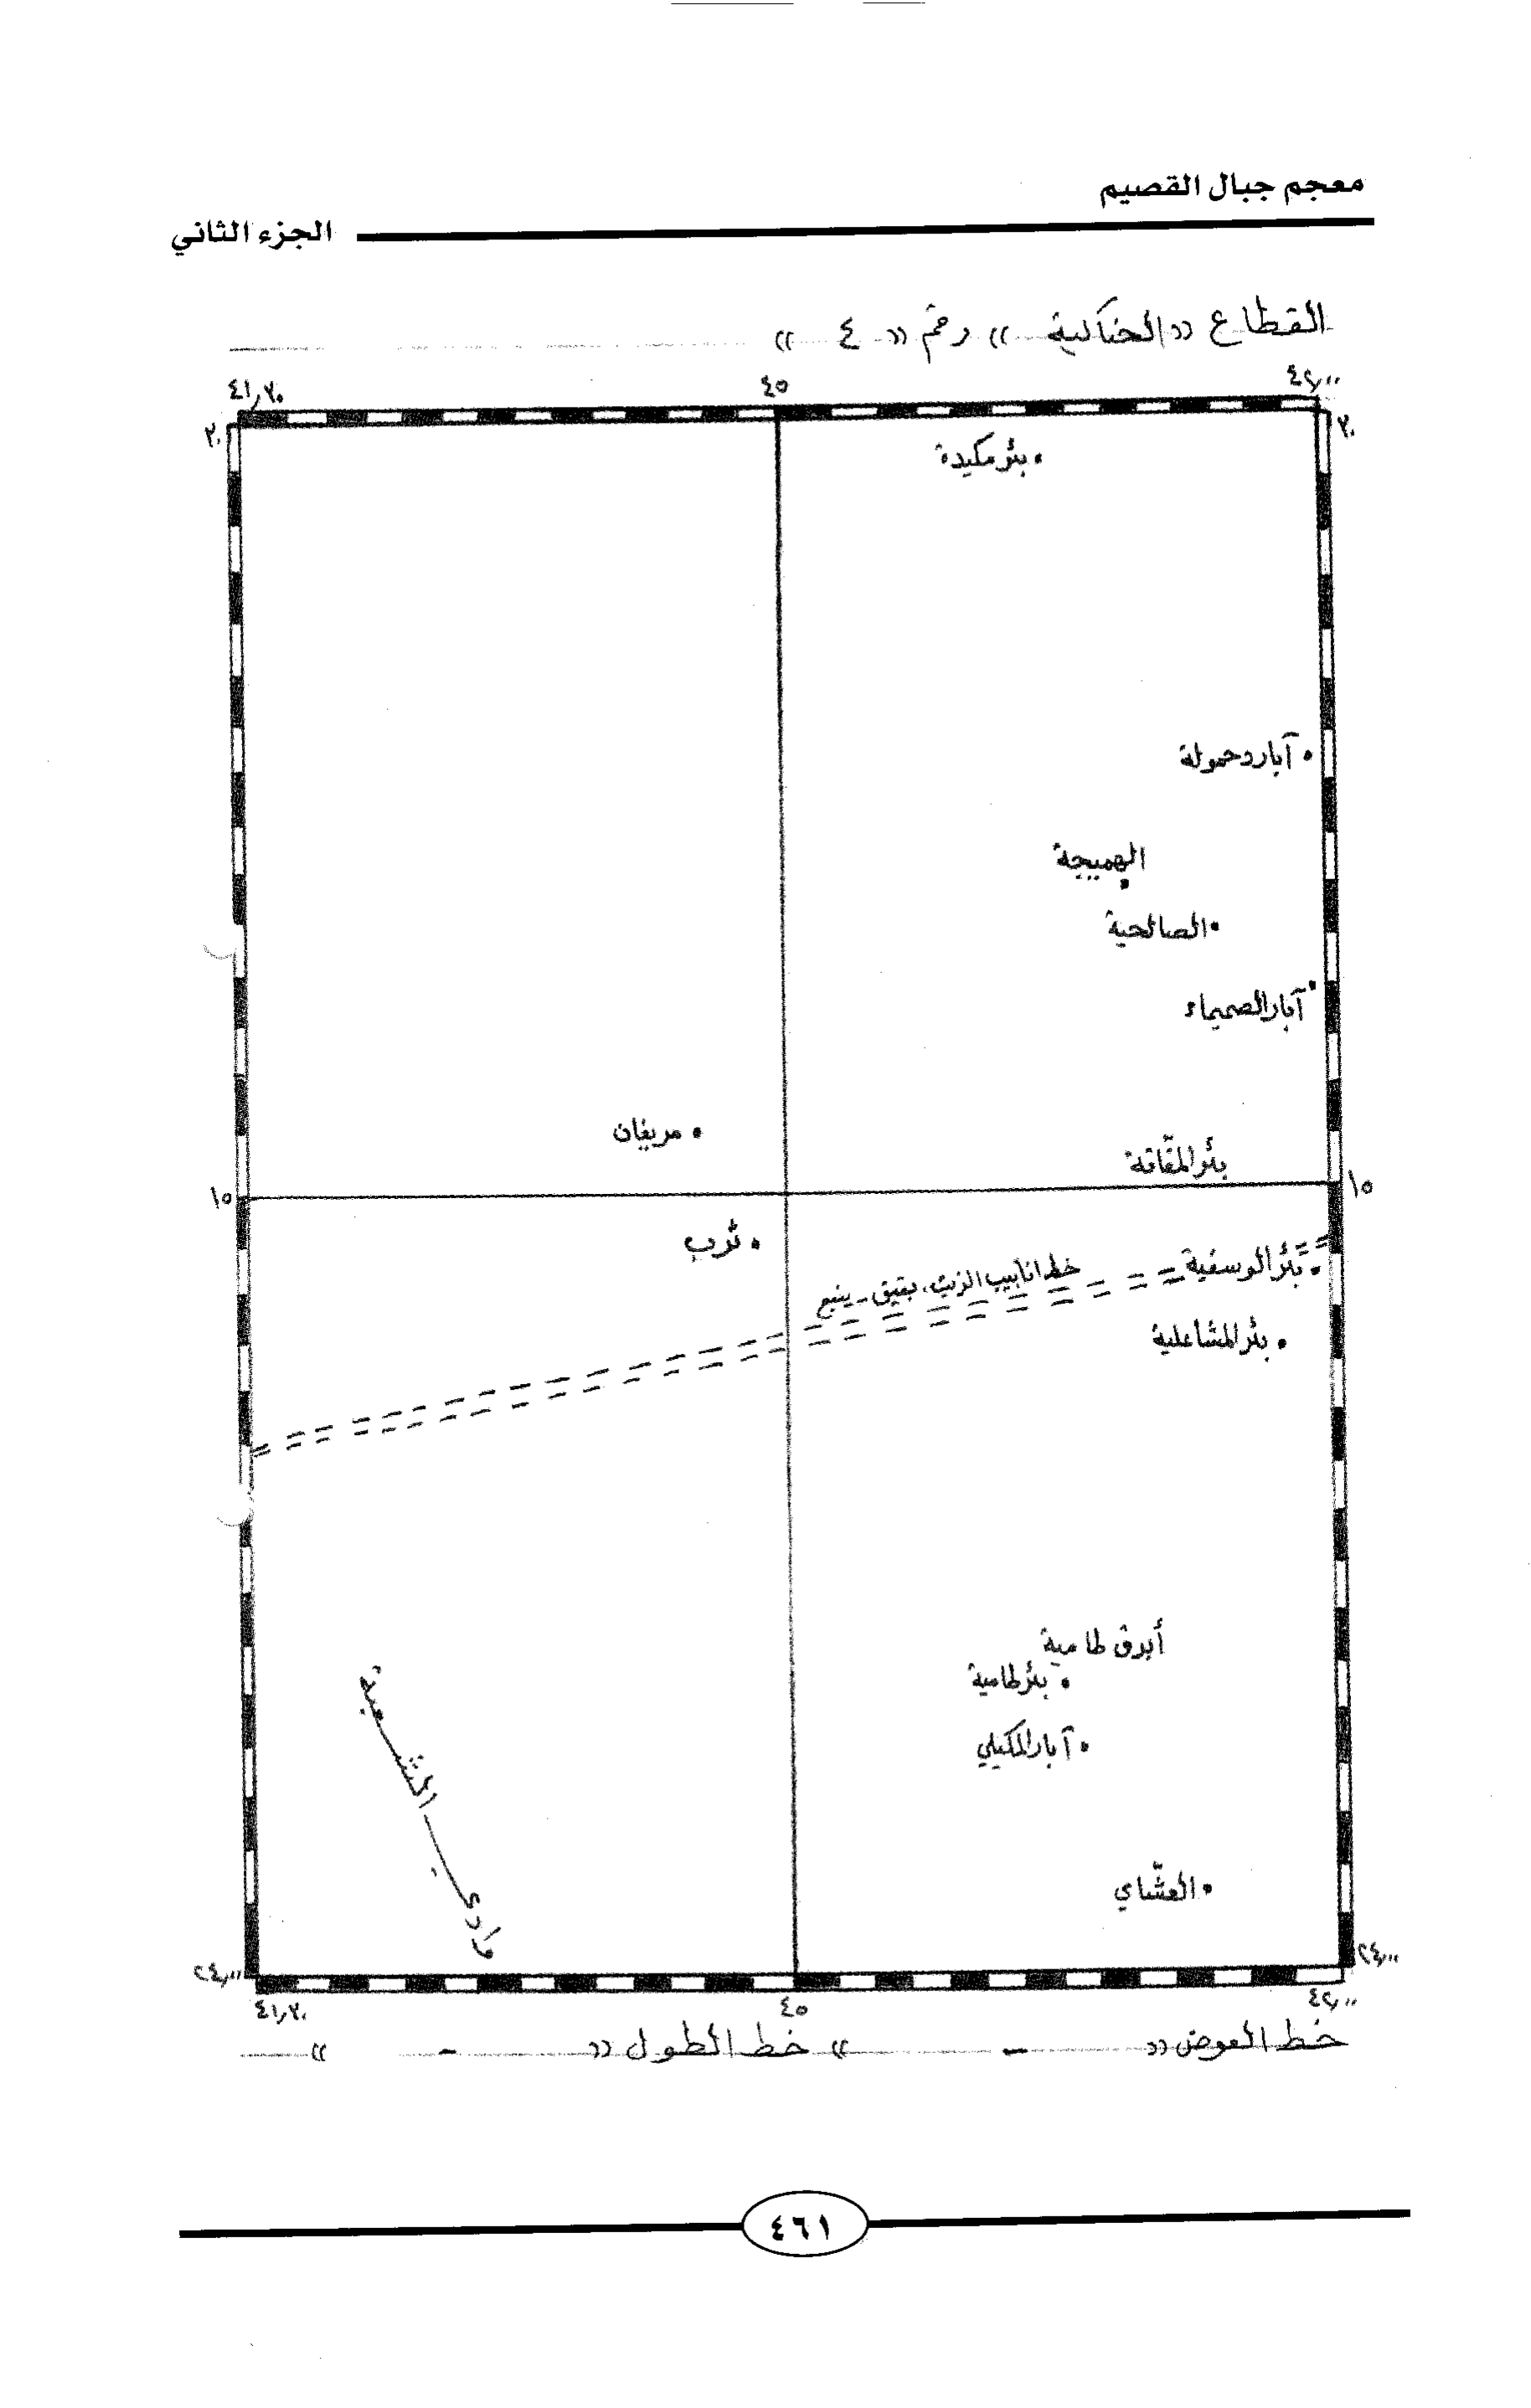 معجم جبال القصيم
الجزء الثاني
القطاع «الحناكية» رقم «٤»
٤٢٫٠٠ ٤٥ ٤١٫٣٠
٣٠ ٣٠
بئر مكيدة
آبار دحمولة
الهميجة
الصالحية
آبار الصميماء
مريفان
بئر المقاقة
١٥ ١٥
ثرب
بئر الوسفية
خط انابيب الزيت، بقيق - ينبع
بئر المشاعلية
أبرق طامية
بئر طامية
آبار المكيلي
وادي الشعبة
العشاي
٢٤٫٠٠ ٢٤٫٠٠
٤٢٫٠٠ ٤٥ ٤١٫٣٠
خط العرض « - » خط الطول « - »
٤٦١